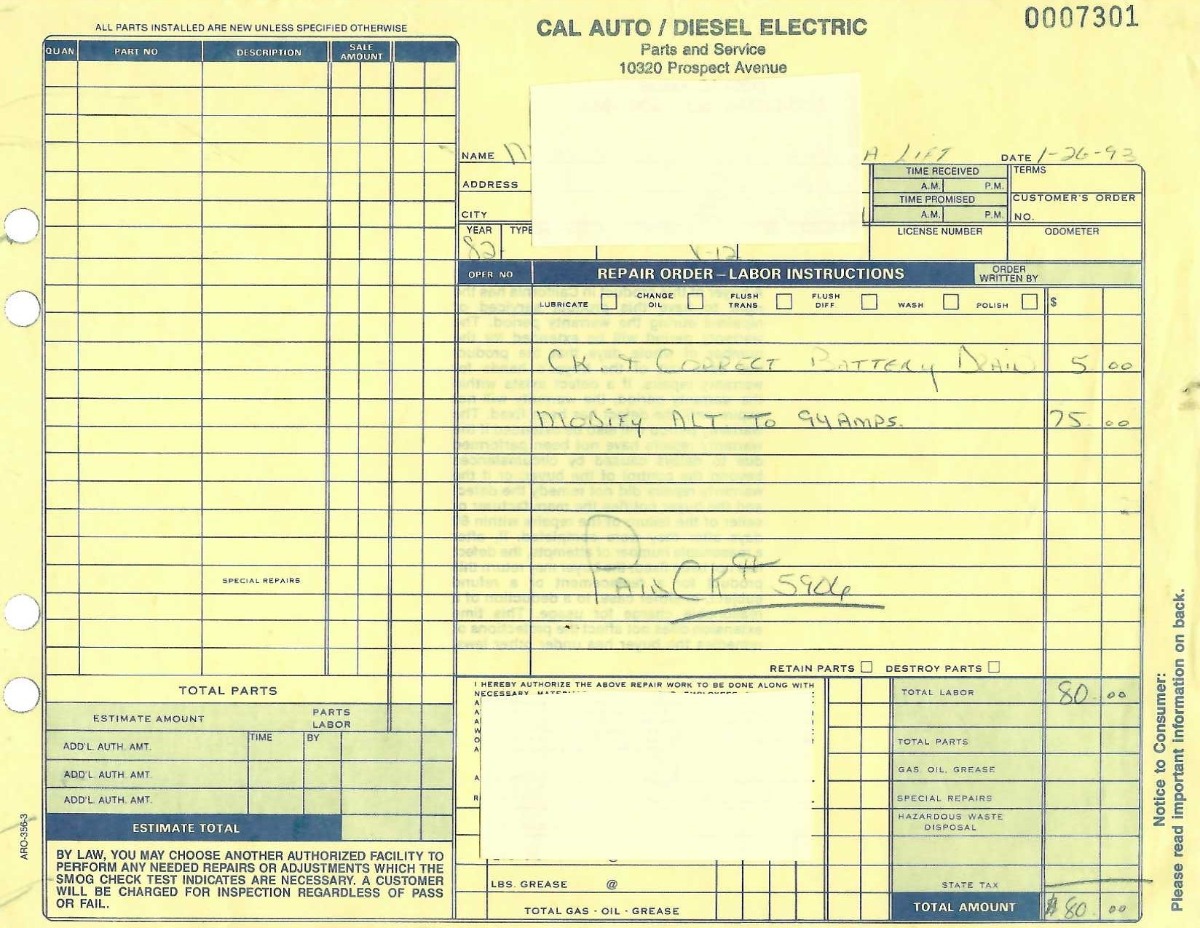 ALL PARTS INSTALLED ARE NEW UNLESS SPECIFIED OTHERWISE
CAL AUTO / DIESEL ELECTRIC
0007301
Parts and Service
10320 Prospect Avenue
QUAN PART NO DESCRIPTION SALE AMOUNT
NAME A LIFT DATE 1-26-93
ADDRESS
CITY
TIME RECEIVED
A.M. P.M.
TIME PROMISED
A.M. P.M.
TERMS
CUSTOMER'S ORDER NO.
YEAR TYPE LICENSE NUMBER ODOMETER
82 V-12
OPER NO REPAIR ORDER – LABOR INSTRUCTIONS ORDER WRITTEN BY
LUBRICATE CHANGE OIL FLUSH TRANS. FLUSH DIFF. WASH POLISH $
CK + CORRECT BATTERY DRAIN 5 00
MODIFY ALT TO 94 AMPS. 75 00
PAID CK# 5906
SPECIAL REPAIRS
RETAIN PARTS DESTROY PARTS
TOTAL PARTS
ESTIMATE AMOUNT PARTS LABOR
TIME BY
ADD'L. AUTH. AMT.
ADD'L. AUTH. AMT.
ADD'L. AUTH. AMT.
ESTIMATE TOTAL
BY LAW, YOU MAY CHOOSE ANOTHER AUTHORIZED FACILITY TO
PERFORM ANY NEEDED REPAIRS OR ADJUSTMENTS WHICH THE
SMOG CHECK TEST INDICATES ARE NECESSARY. A CUSTOMER
WILL BE CHARGED FOR INSPECTION REGARDLESS OF PASS
OR FAIL.
ARO-356-3
I HEREBY AUTHORIZE THE ABOVE REPAIR WORK TO BE DONE ALONG WITH
LBS. GREASE @
TOTAL GAS - OIL - GREASE
TOTAL LABOR 80 00
TOTAL PARTS
GAS, OIL, GREASE
SPECIAL REPAIRS
HAZARDOUS WASTE DISPOSAL
STATE TAX
TOTAL AMOUNT $80 00
Notice to Consumer:
Please read important information on back.